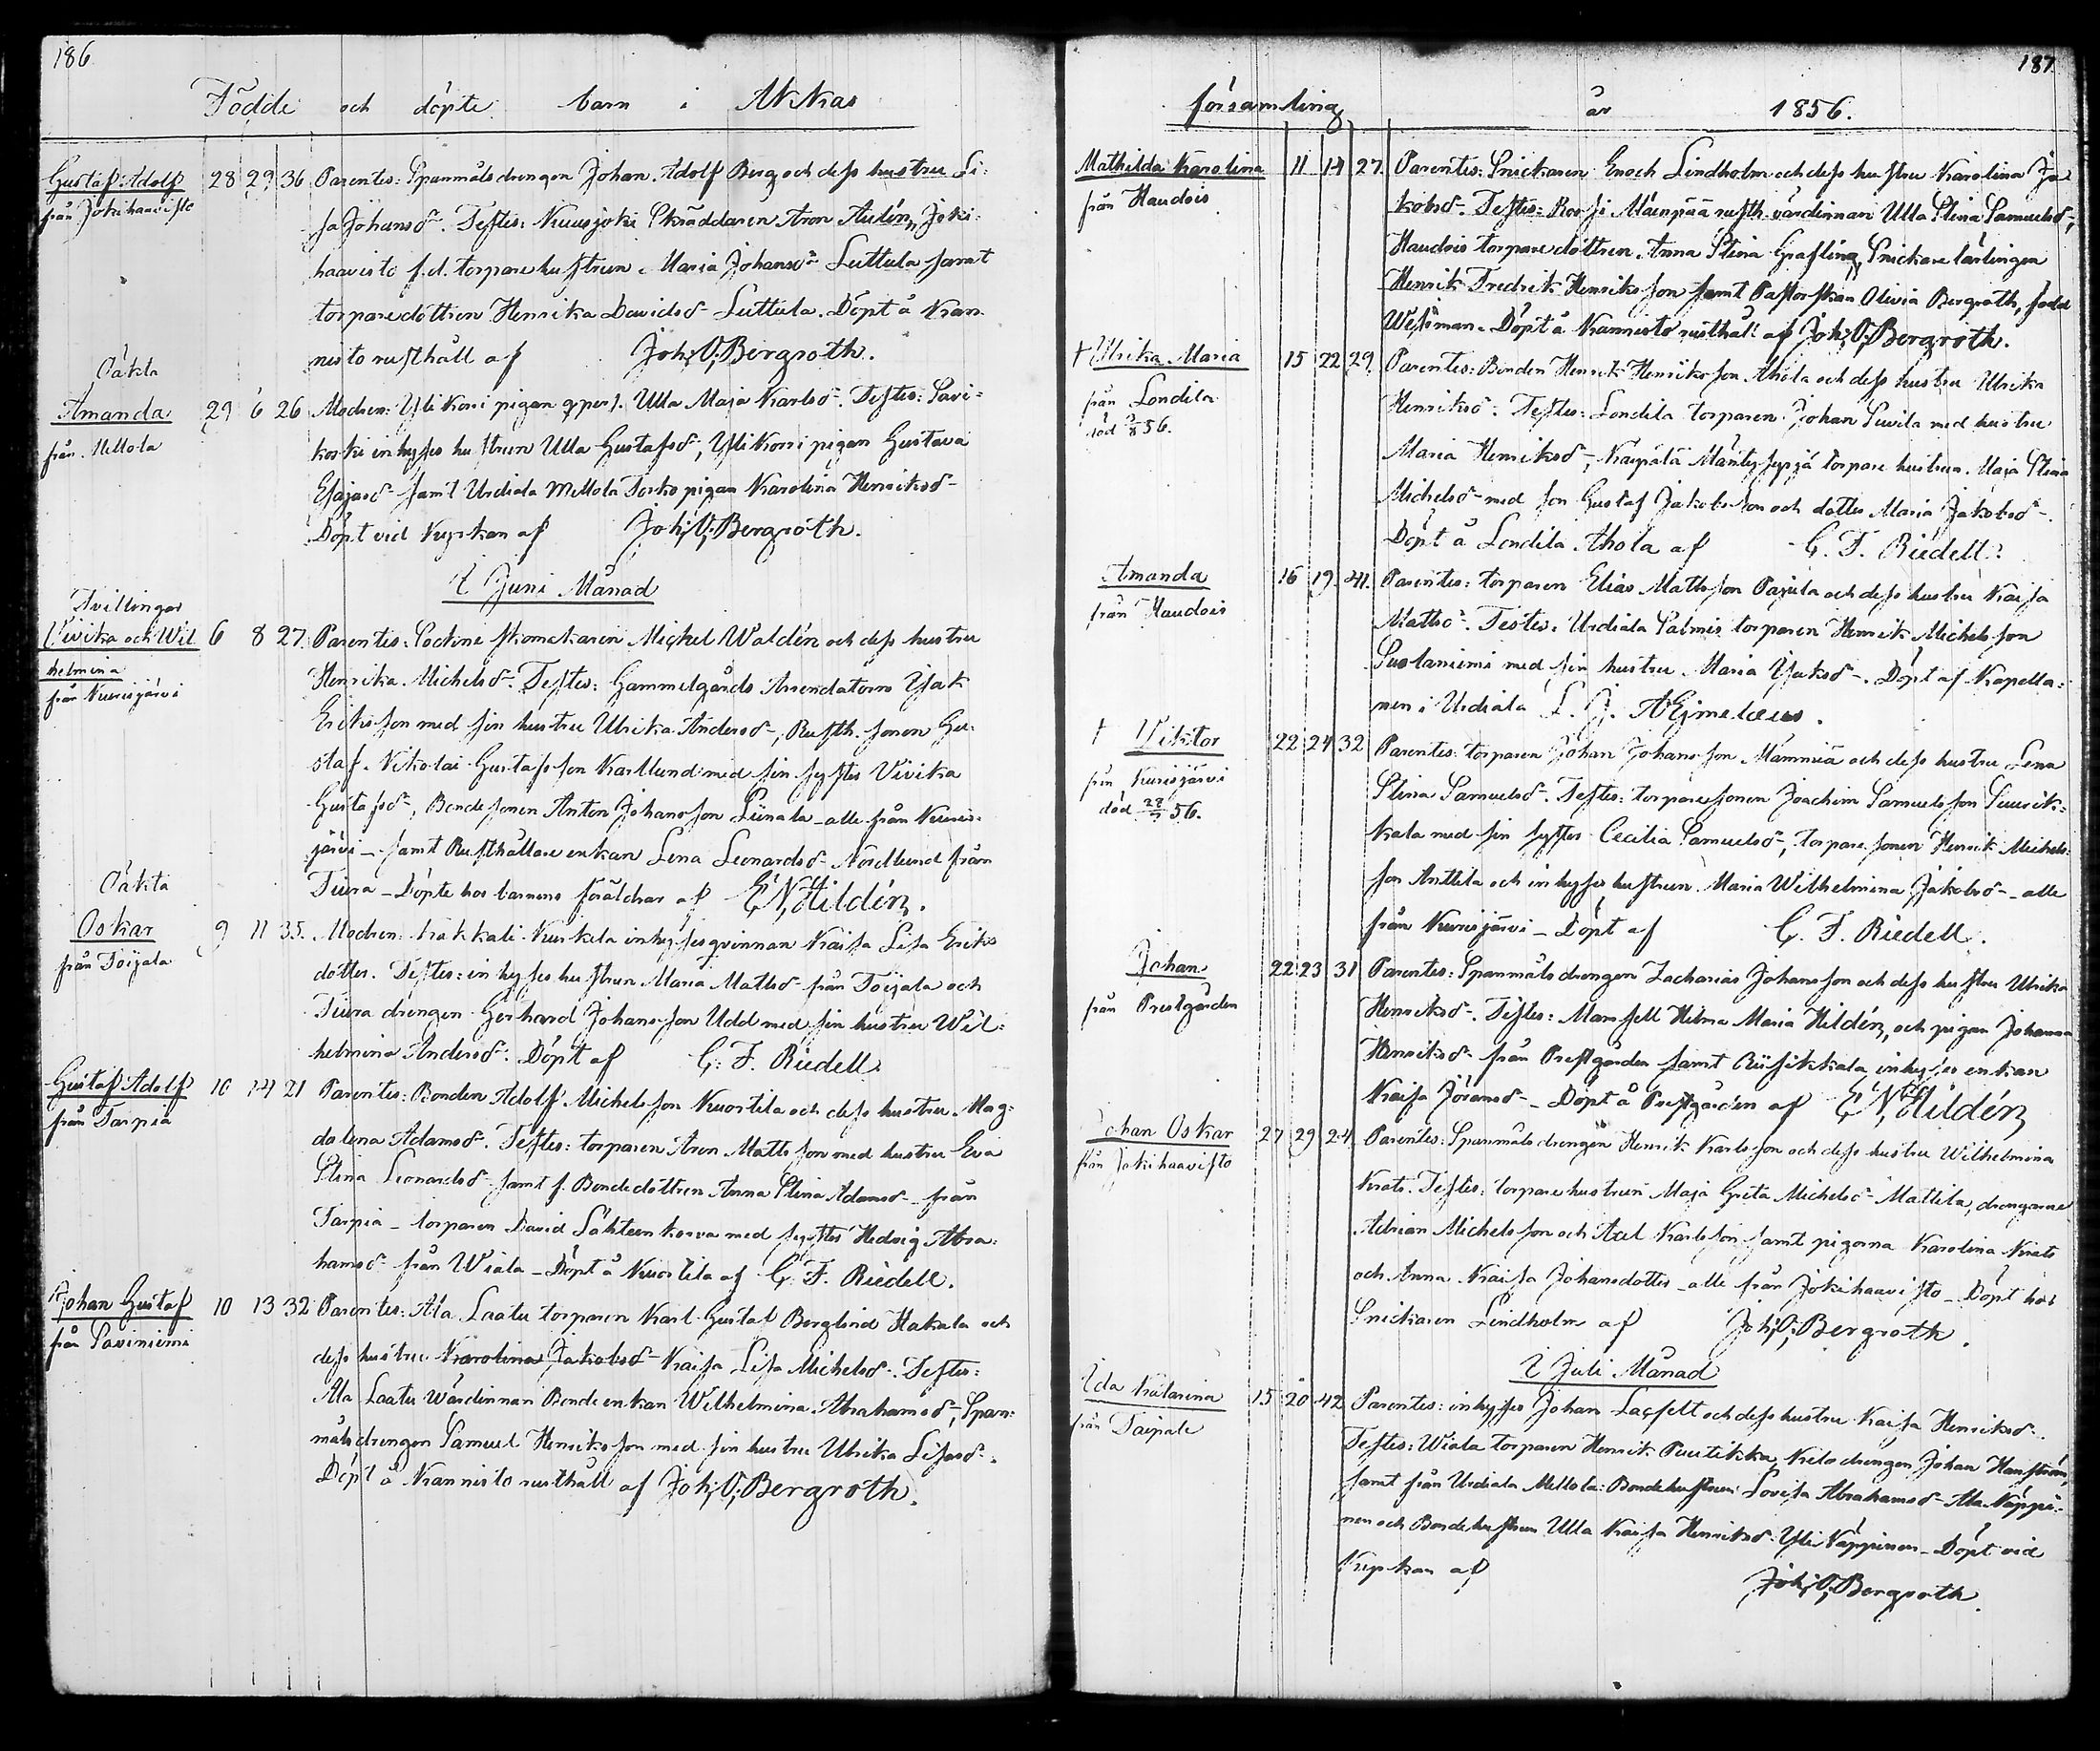 186
Födde och döpte barn i Akkas
Gustaf Adolf 28 29 36 Parentes: Spanmålsdrengen Johan Adolf Berg och dess hustru Li-
från Jokihaavisto
sa Johansd-. Testes: Kuusjoki Skräddaren Aron Aulén, Joki-
haavisto f.d. torparehustrun Maria Johansd- Luttula samt
torparedottren Henrika Davidsd- Luttula. Döpt å Kan-
nisto rusthåll af Joh: O: Bergroth.
Oäkta
Amanda 29 6 26 Modren: Yli Konni pigan Ulla Maja Karlsd-. Testes: Savi-
från Mellola
koski inhyses hustrun Ulla Gustafsd-, Yli Konni pigan Gustava
Esajasd- samt Urdiala Mellola Torko pigan Karolina Henriksd-
Döpt vid Kyrkan af Joh: O: Bergroth.
I Juni Månad
Tvillingar
Vivika och Wil 6 8 27 Parentes: Sockneskomakaren Michel Waldén och dess hustru
helmina
från Kurisjärvi
Henrika Michelsd-. Testes: Gammelgårds Arrendatorn Isak
Ericsson med sin hustru Ulrika Andersd-, Rusth. sonen Gu-
staf Nikolai Gustafsson Karllund med sin syster Vivika
Gustafsd-, Bondesonen Anton Johansson Liinala - alle från Kuris-
järvi - samt Rusthållare enkan Lena Leonardsd- Nordlund från
Tiura - Döpte hos barnens föräldrar af E N Hildén.
Oäkta
Oskar 9 11 35. Modren: Kakkali Kurkela inhysesqvinnan Kaisa Lisa Eriks
från Toijala
dotter. Testes: inhyses hustrun Maria Mattsd- från Toijala och
Tiura drengen Gerhard Johansson Udd med sin hustru Wil-
helmina Andersd-. Döpt af C. F. Riedell
Gustaf Adolf 10 14 21 Parentes: Bonden Adolf Michelsson Kuortila och dess hustru Mag-
från Tarpia
dalena Adamsd-. Testes: torparen Aron Mattsson med hustru Eva
Stina Leonardsd- samt f. Bondedottren Anna Stina Adamsd- från
Tarpia - torparen David Sahteenkorva med syster Hedvig Abra-
hamsd- från Wiala - Döpt å Kuortila af C. F. Riedell.
Johan Gustaf 10 13 32 Parentes: Ala Laatu torparen Karl Gustaf Berglind Hakala och
från Saviniemi
dess hustru Karolina Jakobsd- Kaisa Lisa Michelsd-. Testes:
Ala Laatu Wärdinnan Bonde enkan Wilhelmina Abrahamsd-, Span-
målsdrengen Samuel Henriksson med sin hustru Ulrika Lisasd-.
Döpt å Kannisto rusthåll af Joh: O: Bergroth.
187
församling år 1856.
Mathilda Karolina 11 14 27 Parentes: Snickaren Enoch Lindholm och dess hustru Karolina Ja-
från Haudois
kobsd-. Testes: Mäenpää rusth. värdinnan Ulla Stina Samuelsd-,
Haudois torparedottren Anna Stina Grafling, Snickare lärlingen
Henrik Fredrik Henriksson samt Pastorskan Olivia Bergroth, född
Wessman. Döpt å Kannisto rusthåll af Joh: O: Bergroth.
† Ulrika Maria 15 22 29 Parentes: Bonden Henrik Henriksson Ahola och dess hustru Ulrika
från Londila
död 56.
Henriksd-. Testes: Londila torparen Johan med hustru
Maria Henriksd-, torpare hustrun Maja Stina
Michelsd- med son Gustaf Jakobsson och dotter Maria Jakobsd-.
Döpt å Londila Ahola af C. F. Riedell.
Amanda 16 19 41. Parentes: torparen Elias Mattsson Pajula och dess hustru Kaisa
från Haudois
Mattsd-. Testes: Urdiala Salmis torparen Henrik Michelsson
Suolaniemi med sin hustru Maria Isaksd-. Döpt af Kapella-
nen i Urdiala L. J. Aejmelæus.
† Viktor 22 24 32 Parentes: torparen Johan Johansson Mämmiä och dess hustru Lena
från Kurisjärvi
död 28/7 56.
Stina Samuelsd-. Testes: torparesonen Joachim Samuelsson Suurik-
kala med sin syster Cecilia Samuelsd-, torparesonen Henrik Michels-
son Anttila och inhyses hustrun Maria Wilhelmina Jakobsd- alle
från Kurisjärvi - Döpt af C. F. Riedell.
Johan 22 23 31 Parentes: Spanmålsdrengen Zacharias Johansson och dess hustru Ulrika
från Prestgården
Henriksd-. Testes: Mamsell Hilma Maria Hildén, och pigan Johanna
Henriksd- från Prestgården samt Riisikkala inhyses enkan
Kaisa Göransd- - Döpt å Prestgården af E N Hildén
Johan Oskar 27 29 24 Parentes: Spanmålsdrengen Henrik Karlsson och dess hustru Wilhelmina
från Jokihaavisto
Krats. Testes: torparehustrun Maja Greta Michelsd- Mattila, drengarne
Adrian Michelsson och Axel Karlsson samt pigorna Karolina Krats
och Anna Kaisa Johansdotter alle från Jokihaavisto - Döpt hos
Snickaren Lindholm af Joh: O: Bergroth.
I Juli Månad
Ida Katarina 15 20 42 Parentes: inhyses Johan Lagfelt och dess hustru Kaisa Henriksd-.
från Taipale
Testes: Wiala torparen Henrik Puutikka, drengen Johan Hanström,
samt från Urdiala Mellola: Bondehustrun Lovisa Abrahamsd- Ala Näppi-
nen och Bondehustrun Ulla Kaisa Henriksd- Yli Näppinen - Döpt vid
Kyrkan af Joh: O: Bergroth.